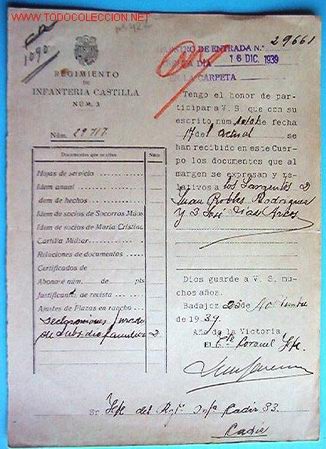 www.TODOCOLECCION.NET
1090
29661
REGISTRO DE ENTRADA N.º
DIA 16 DIC. 1939
LA CARPETA
REGIMIENTO
DE
INFANTERIA CASTILLA
NÚM. 3
Núm. 22717
Documentos que se citan Núm.
Hojas de servicio
Idem anual
Idem de hechos
Idem de socios de Socorros Mutuos
Idem de socios de María Cristina
Cartilla Militar
Relaciones de documentos
Certificados de
Abonaré núm. de pts
Justificante de revista
Ajustes de Plazas en rancho
declaraciones jurada
de subsidio familiar 2
Tengo el honor de
participar a V. S. que con su
escrito núm. fecha
17 del actual
se han recibido en este Cuer-
po los documentos que al
margen se expresan y re-
lativos a los Sargentos D.
Juan Robles Rodriguez
y D. José Dias
Dios guarde a V. S. mu-
chos años.
Badajoz de
de 1939.
Año de la Victoria
El Coronel
Sr. Jefe del Regt. Infa Cadiz 33.
Cadiz